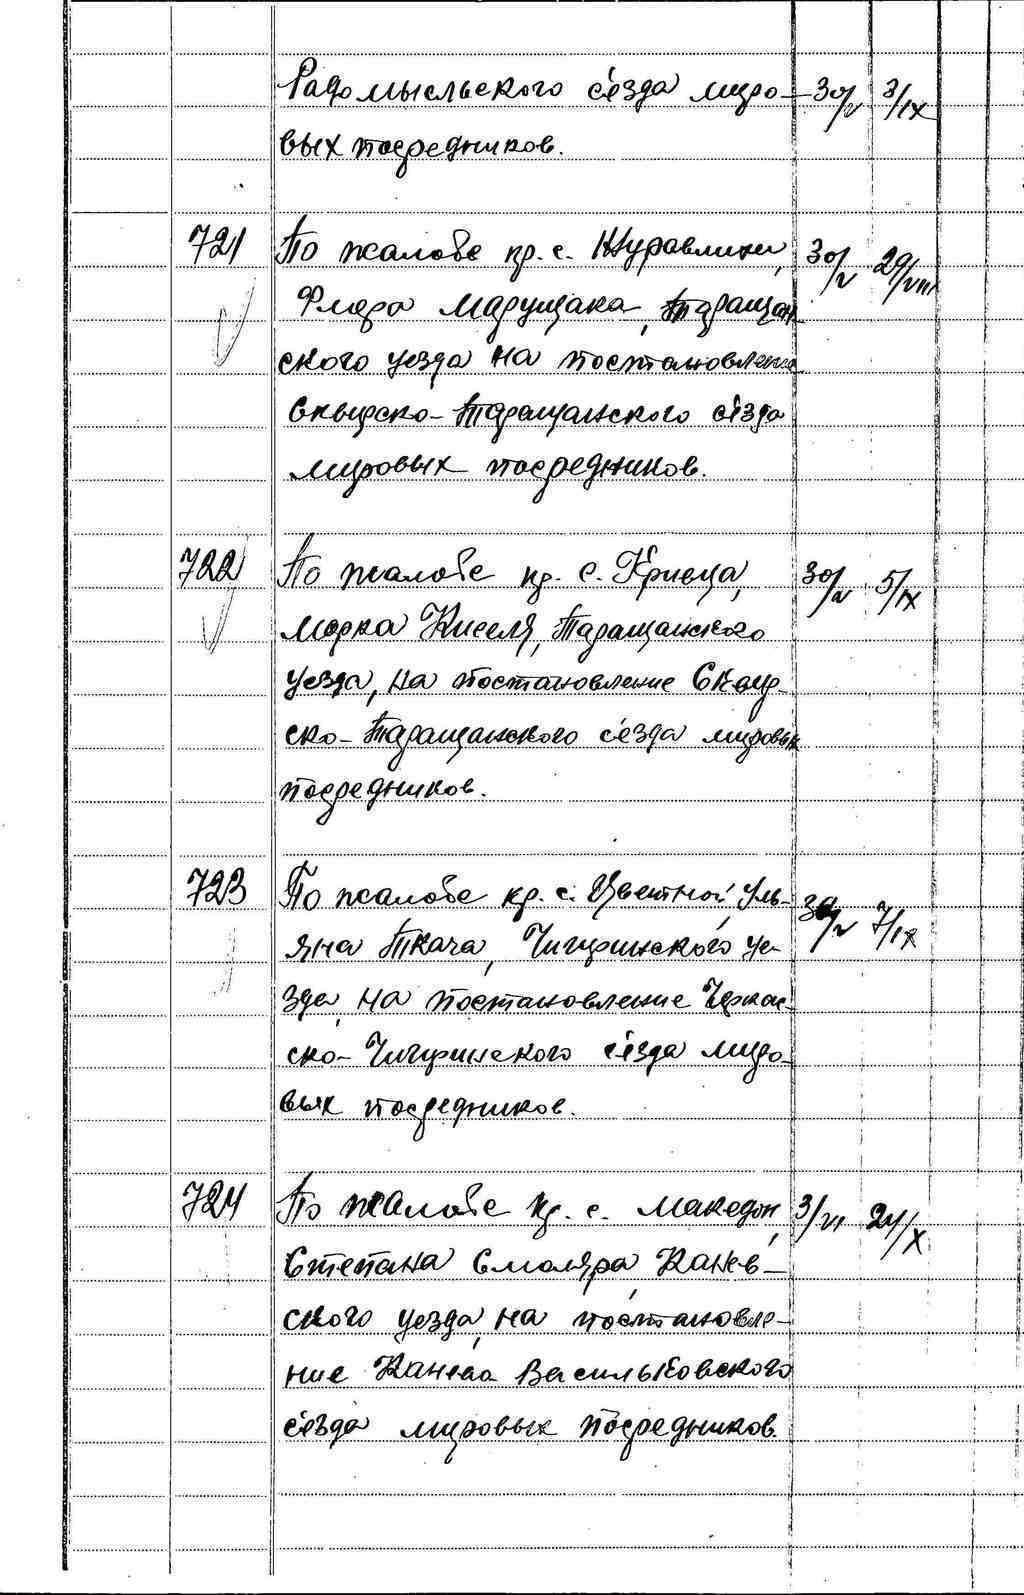 Радомысльского съезда миро- 30/V 3/IX
вых посредников.
721 По жалобе кр. с. Журавлихи, 30/V 29/VIII
Флора Марущака, Таращан-
ского уезда на постановление
Сквирско-Таращанского съезда
мировых посредников.
722 По жалобе кр. с. Кривца, 30/V 5/IX
Марка Киселя, Таращанского
уезда, на постановление Сквир-
ско-Таращанского съезда мировых
посредников.
723 По жалобе кр. с. Цветной Уль- 30/V 7/IX
яна Ткача, Чигиринского уе-
зда, на постановление Черкас-
ско-Чигиринского съезда миро-
вых посредников.
724 По жалобе кр. с. Македон, 3/VI 24/X
Степана Смоляра, Канев-
ского уезда, на постановле-
ние Васильковского
съезда мировых посредников.